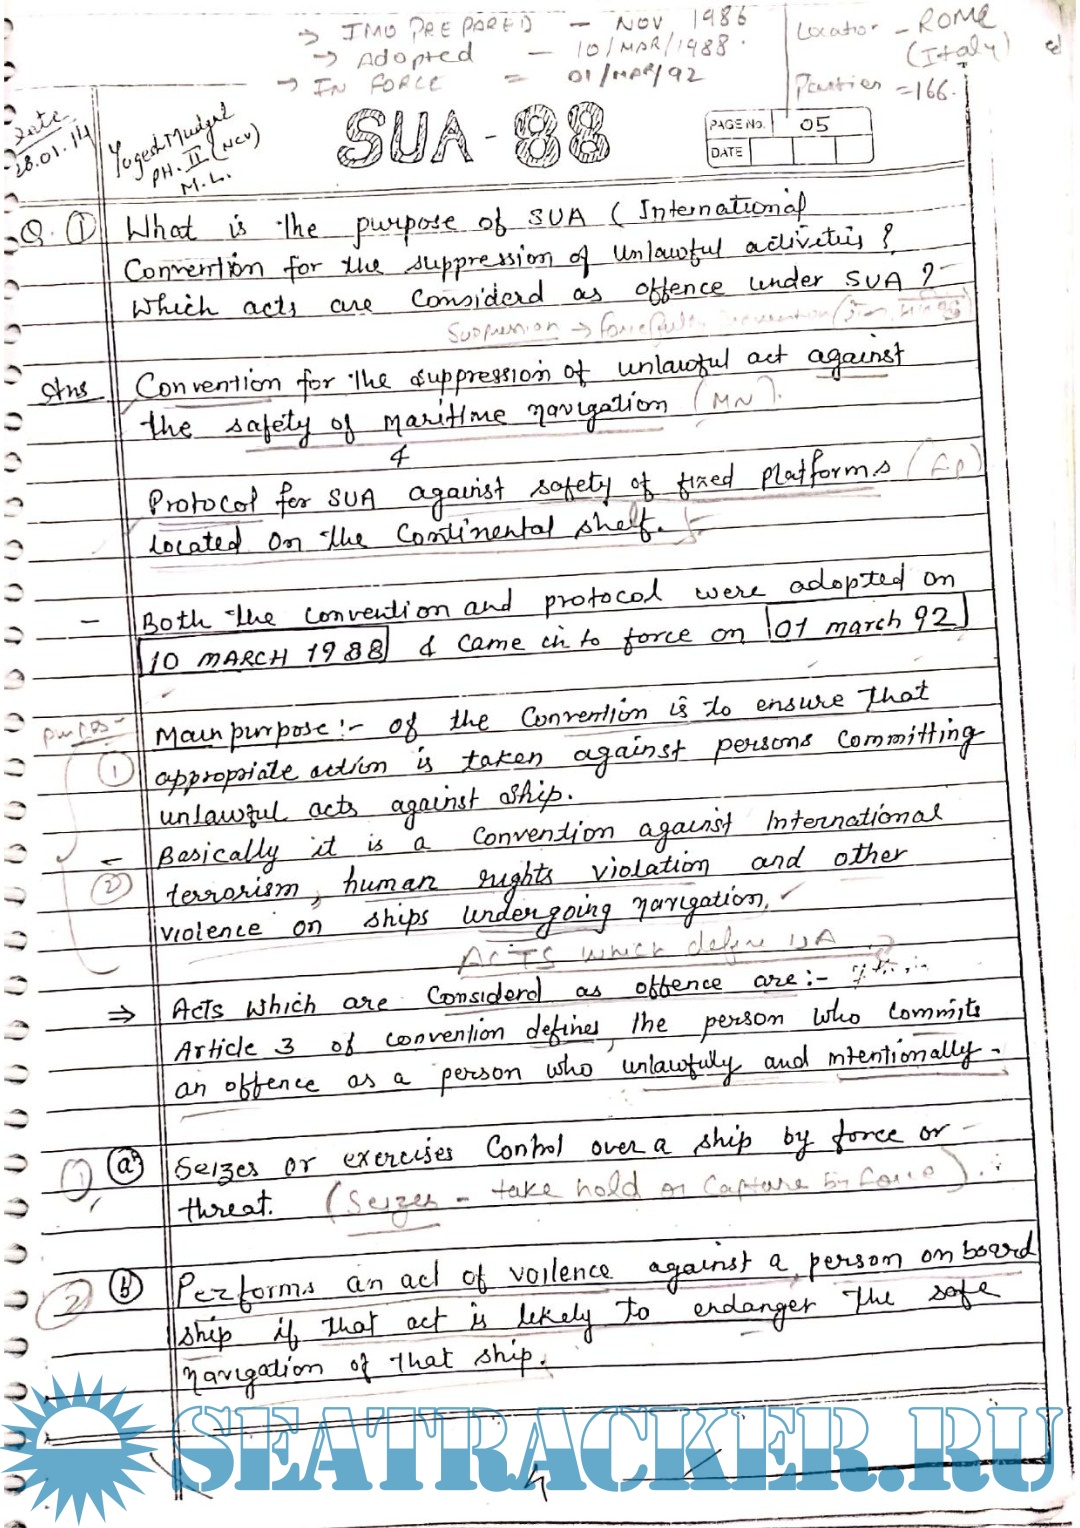 → IMO PREPARED – NOV 1986
→ Adopted – 10/MAR/1988.
→ IN FORCE = 01/MAR/92
Location – ROME
(Italy)
Parties =166.
Date
28.01.14
Yogesh Mudgal
PH. II (NCV)
M.L.
SUA-88
PAGE No. 05
DATE
Q. ① What is the purpose of SUA (International
Convention for the suppression of unlawful activities?
Which acts are considerd as offence under SUA?
Suppression → forcefully prevention
Ans Convention for the suppression of unlawful act against
the safety of Maritime navigation (MN).
&
Protocol for SUA against safety of fixed platforms (FP)
located on the Continental shelf.
– Both the convention and protocol were adopted on
10 MARCH 1988 & came in to force on 01 march 92
purpos –
Main purpose:- of the Convention is to ensure that
① appropriate action is taken against persons committing
unlawful acts against ship.
– Basically it is a convention against International
② terrorism, human rights violation and other
violence on ships undergoing navigation.
ACTS which define UA
⇒ Acts which are considerd as offence are:-
Article 3 of convention defines, the person who commits
an offence as a person who unlawfuly and intentionally-
① (a) Seizes or exercises Control over a ship by force or
threat. (Seizes – take hold or Capture by force).
② (b) Performs an act of voilence against a person on board
ship if that act is likely to endanger the safe
navigation of that ship.
SEATRACKER.RU